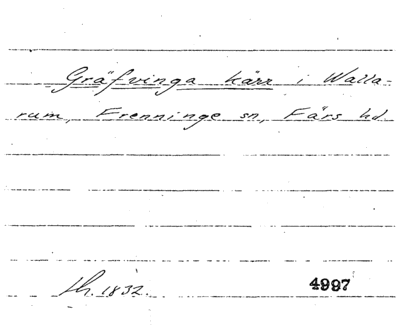 Gräfvinga kärr i Walla-
rum, Frenninge sn, Färs hd
lh. 1832. 4997